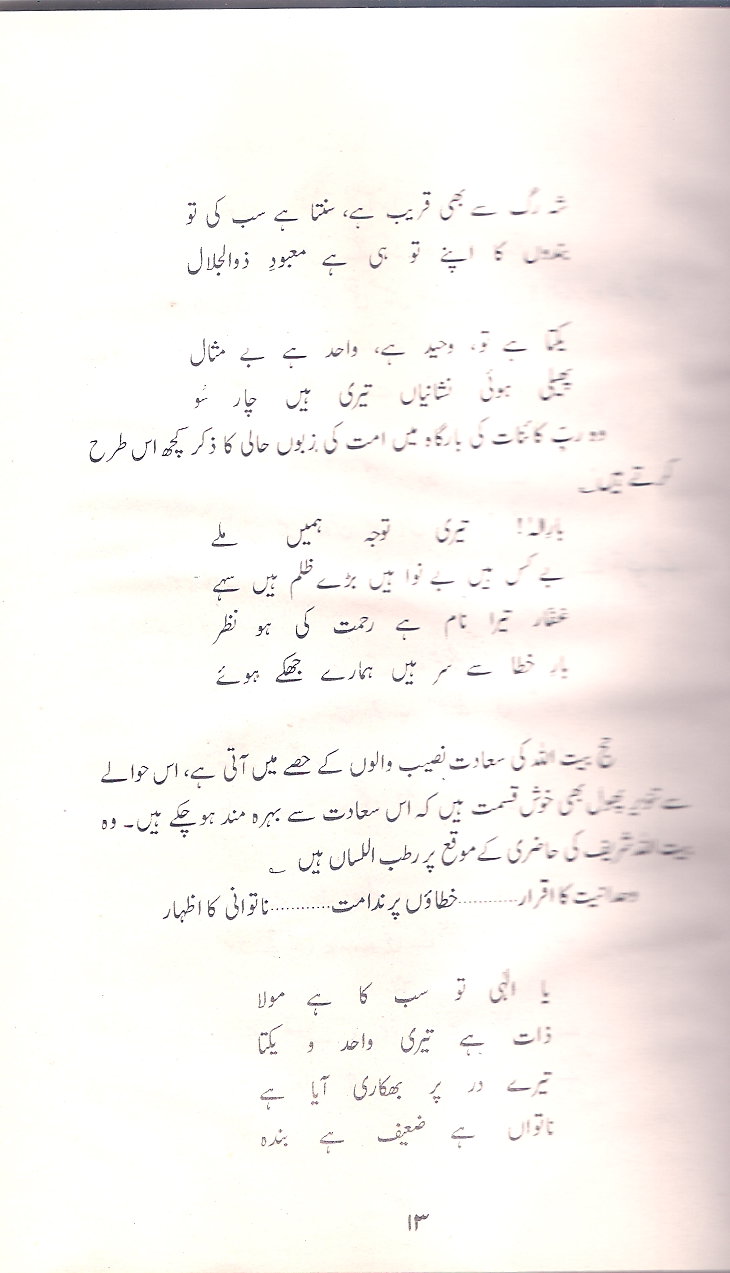 شہ رگ سے بھی قریب ہے، سنتا ہے سب کی تو
بندوں کا اپنے تو ہی ہے معبودِ ذوالجلال
یکتا ہے تو، وحید ہے، واحد ہے بے مثال
پھیلی ہوئی نشانیاں تیری ہیں چار سُو
وہ ربّ کائنات کی بارگاہ میں امت کی زبوں حالی کا ذکر کچھ اس طرح
کرتے ہیں۔
بارِالہٰ! تیری توجہ ہمیں ملے
بے کس ہیں بے نوا ہیں بڑے ظلم ہیں سہے
غفار تیرا نام ہے رحمت کی ہو نظر
بار خطا سے سر ہیں ہمارے جھکے ہوئے
حج بیت اللہ کی سعادت نصیب والوں کے حصے میں آتی ہے، اس حوالے
سے تنویر پھول بھی خوش قسمت ہیں کہ اس سعادت سے بہرہ مند ہو چکے ہیں۔ وہ
بیت اللہ شریف کی حاضری کے موقع پر رطب اللساں ہیں ؎
وحدانیت کا اقرار............خطاؤں پر ندامت............ناتوانی کا اظہار
یا الٰہی تو سب کا ہے مولا
ذات ہے تیری واحد و یکتا
تیرے در پر بھکاری آیا ہے
ناتواں ہے ضعیف ہے بندہ
۱۳